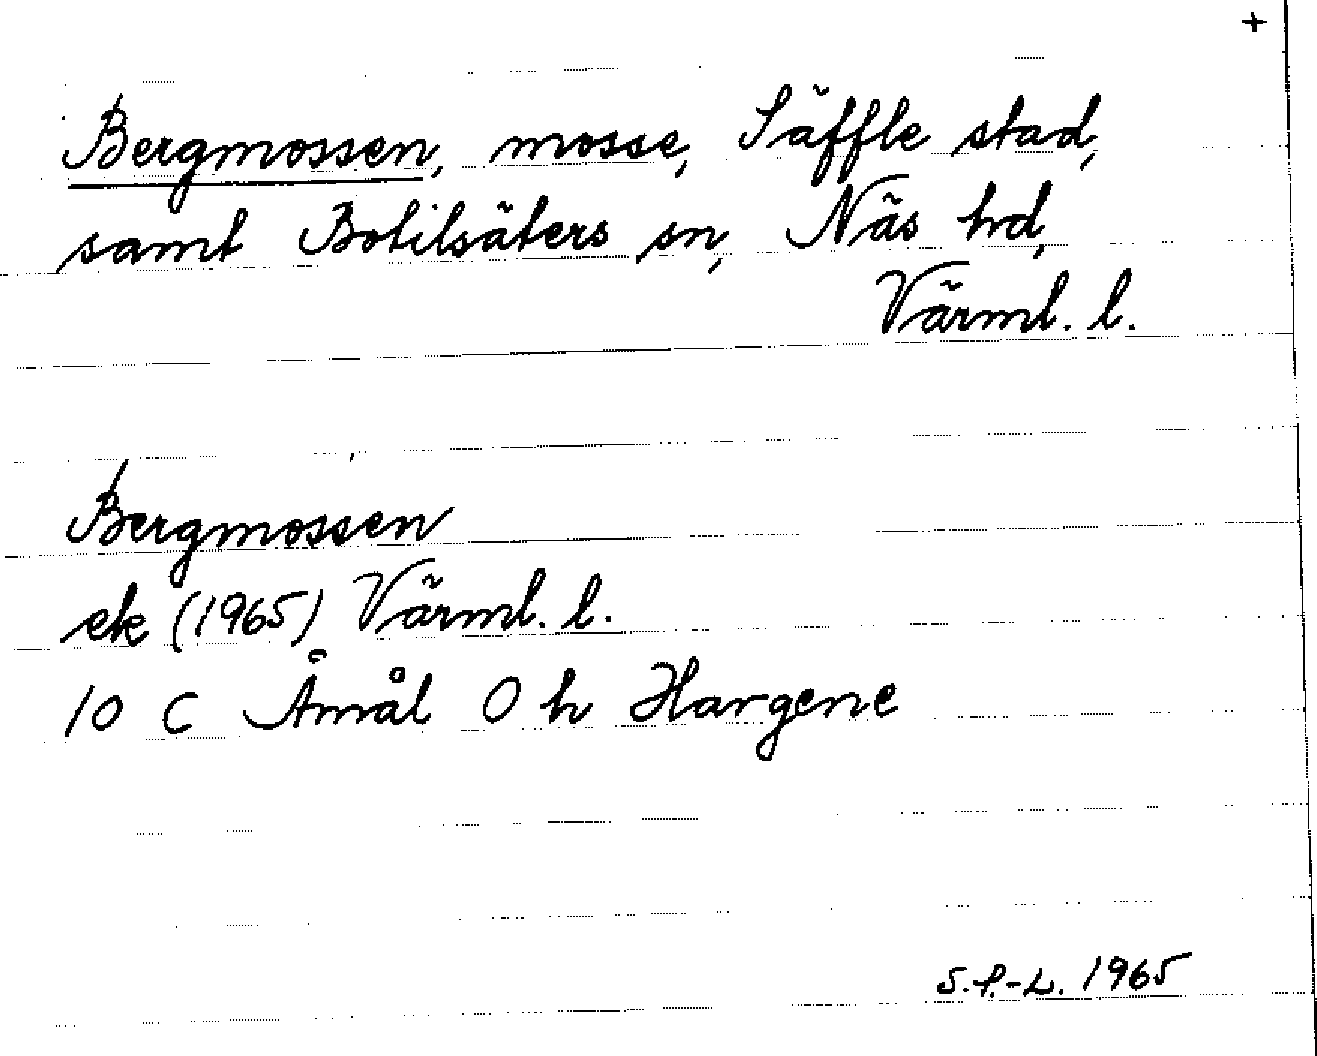 +
Bergmossen, mosse, Säffle stad,
samt Botilsäters sn, Näs hd,
Värml. l.
Bergmossen
ek (1965) Värml. l.
10 C Åmål O h Hargene
S.P.-L. 1965